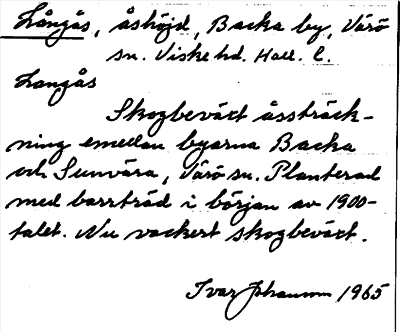 Långås, åshöjd, Backa by, Värö
sn. Viske hd. Hall. l.
Langås
Skogbeväxt åssträck-
ning emellan byarna Backa
och Sunvära, Värö sn. Planterad
med barrträd i början av 1900-
talet. Nu vackert skogbeväxt.
Ivar Johansson 1965